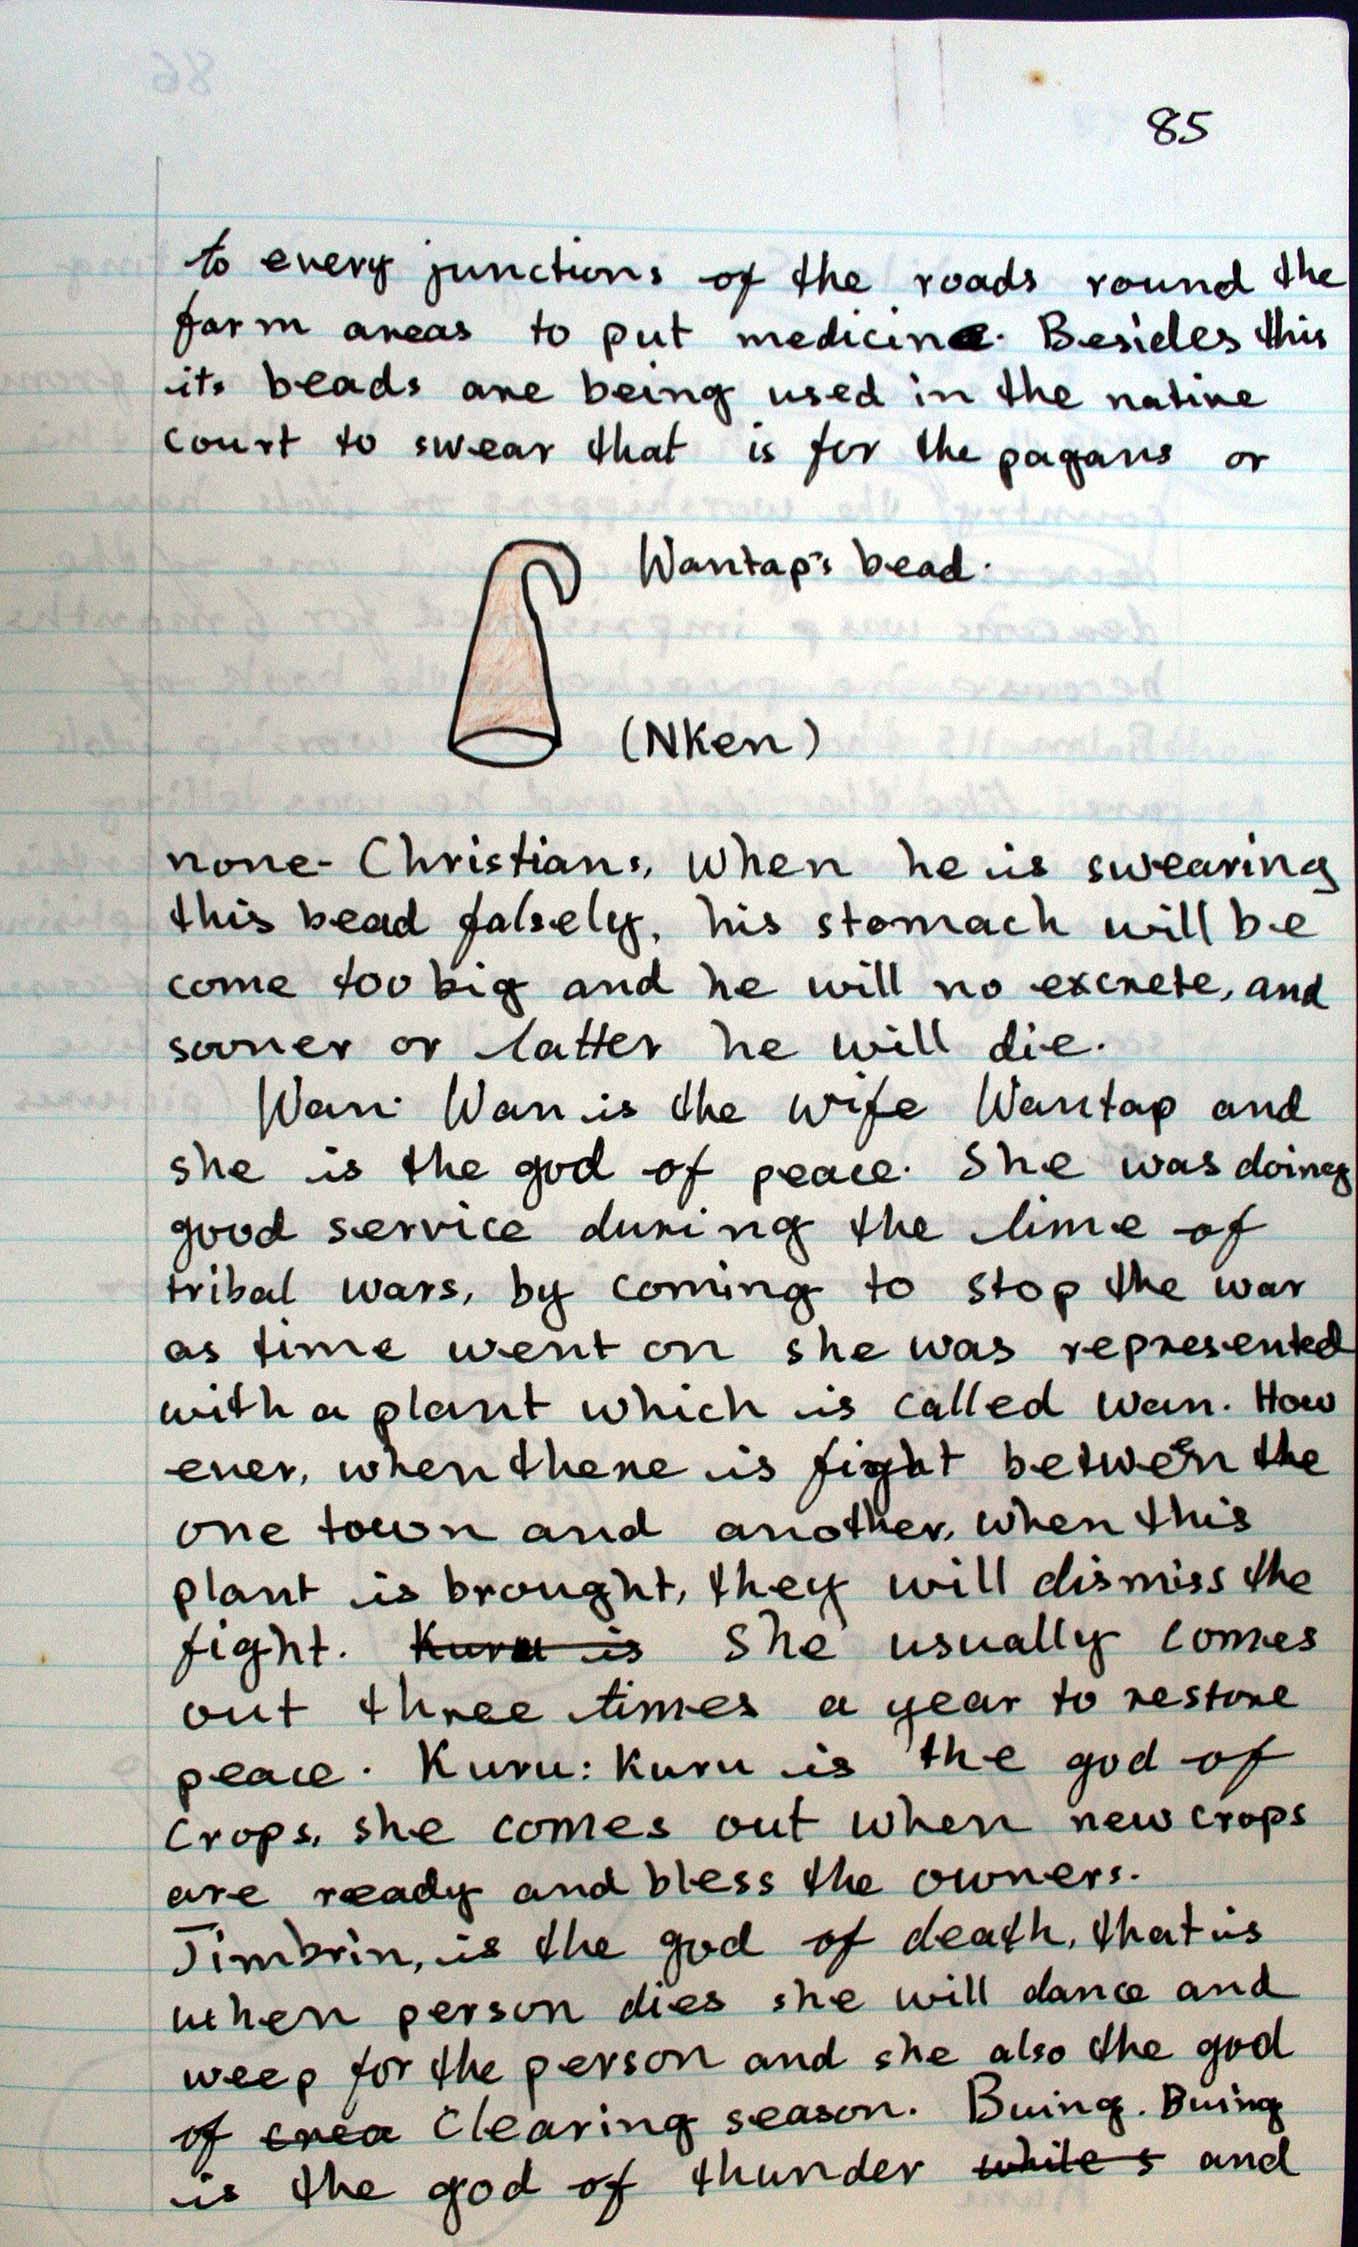 85
to every junctions of the roads round the
farm areas to put medicine. Besides this
its beads are being used in the native
court to swear that is for the pagans or
Wantap's bead.
(NKen)
none- Christians, When he is swearing
this bead falsely, his stomach will be
come too big and he will no excrete, and
sooner or latter he will die.
Wan. Wan is the wife Wantap and
she is the god of peace. She was doing
good service during the time of
tribal wars, by coming to stop the war
as time went on she was represented
with a plant which is called wan. How
ever, when there is fight between the
one town and another, when this
plant is brought, they will dismiss the
fight. Kuru is She usually comes
out three times a year to restore
peace. Kuru: Kuru is the god of
crops, she comes out when new crops
are ready and bless the owners.
Jimbrin, is the god of death, that is
when person dies she will dance and
weep for the person and she also the god
of crea Clearing season. Buing. Buing
is the god of thunder while s and